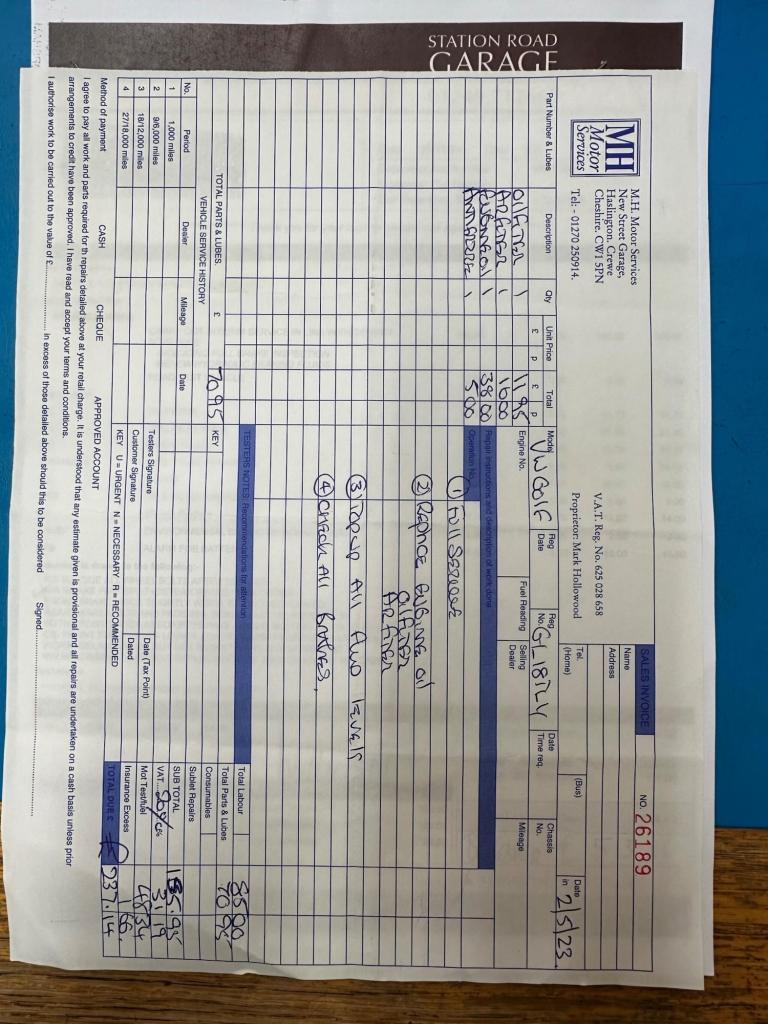 STATION ROAD
GARAGE
MH
Motor
Services
M.H. Motor Services
New Street Garage,
Haslington, Crewe
Cheshire. CW1 5PN
Tel: - 01270 250914.
V.A.T. Reg. No. 625 028 658
Proprietor: Mark Hollowood
SALES INVOICE
NO. 26189
Name
Address
Tel. (Home)
(Bus)
Date in 2/5/23
Part Number & Lubes
Description
Qty
Unit Price
£ p
Total
£ p
Model VW GOlF
Reg Date
Reg No. GL18TLY
Date Time req.
Chassis No.
Engine No.
Fuel Reading
Selling Dealer
Mileage
OilFilter 1 11 95
AirFilter 1 16 00
Engine Oil 1 38 00
Antifreeze 1 5 00
Repair instructions and description of work done
Operation No.
① Full Service
② Replace Engine Oil
OilFilter
AirFilter
③ Top up All fluid levels
④ Check All Brakes,
TOTAL PARTS & LUBES. £ 70 95
KEY
TESTERS NOTES: Recommendations for attention
VEHICLE SERVICE HISTORY
No. Period Dealer Mileage Date
1 1,000 miles
2 9/6,000 miles
3 18/12,000 miles
4 27/18,000 miles
Testers Signature
Date (Tax Point)
Customer Signature
Dated
KEY U = URGENT N = NECESSARY R = RECOMMENDED
Total Labour 85 00
Total Parts & Lubes 70 95
Consumables
Sublet Repairs
SUB TOTAL 155.95
VAT 20%
31.19
Mot Test/fuel
Insurance Excess
TOTAL DUE £
Method of payment CASH CHEQUE APPROVED ACCOUNT
I agree to pay all work and parts required for th repairs detailed above at your retail charge. It is understood that any estimate given is provisional and all repairs are undertaken on a cash basis unless prior
arrangements to credit have been approved. I have read and accept your terms and conditions.
I authorise work to be carried out to the value of £ in excess of those detailed above should this to be considered Signed